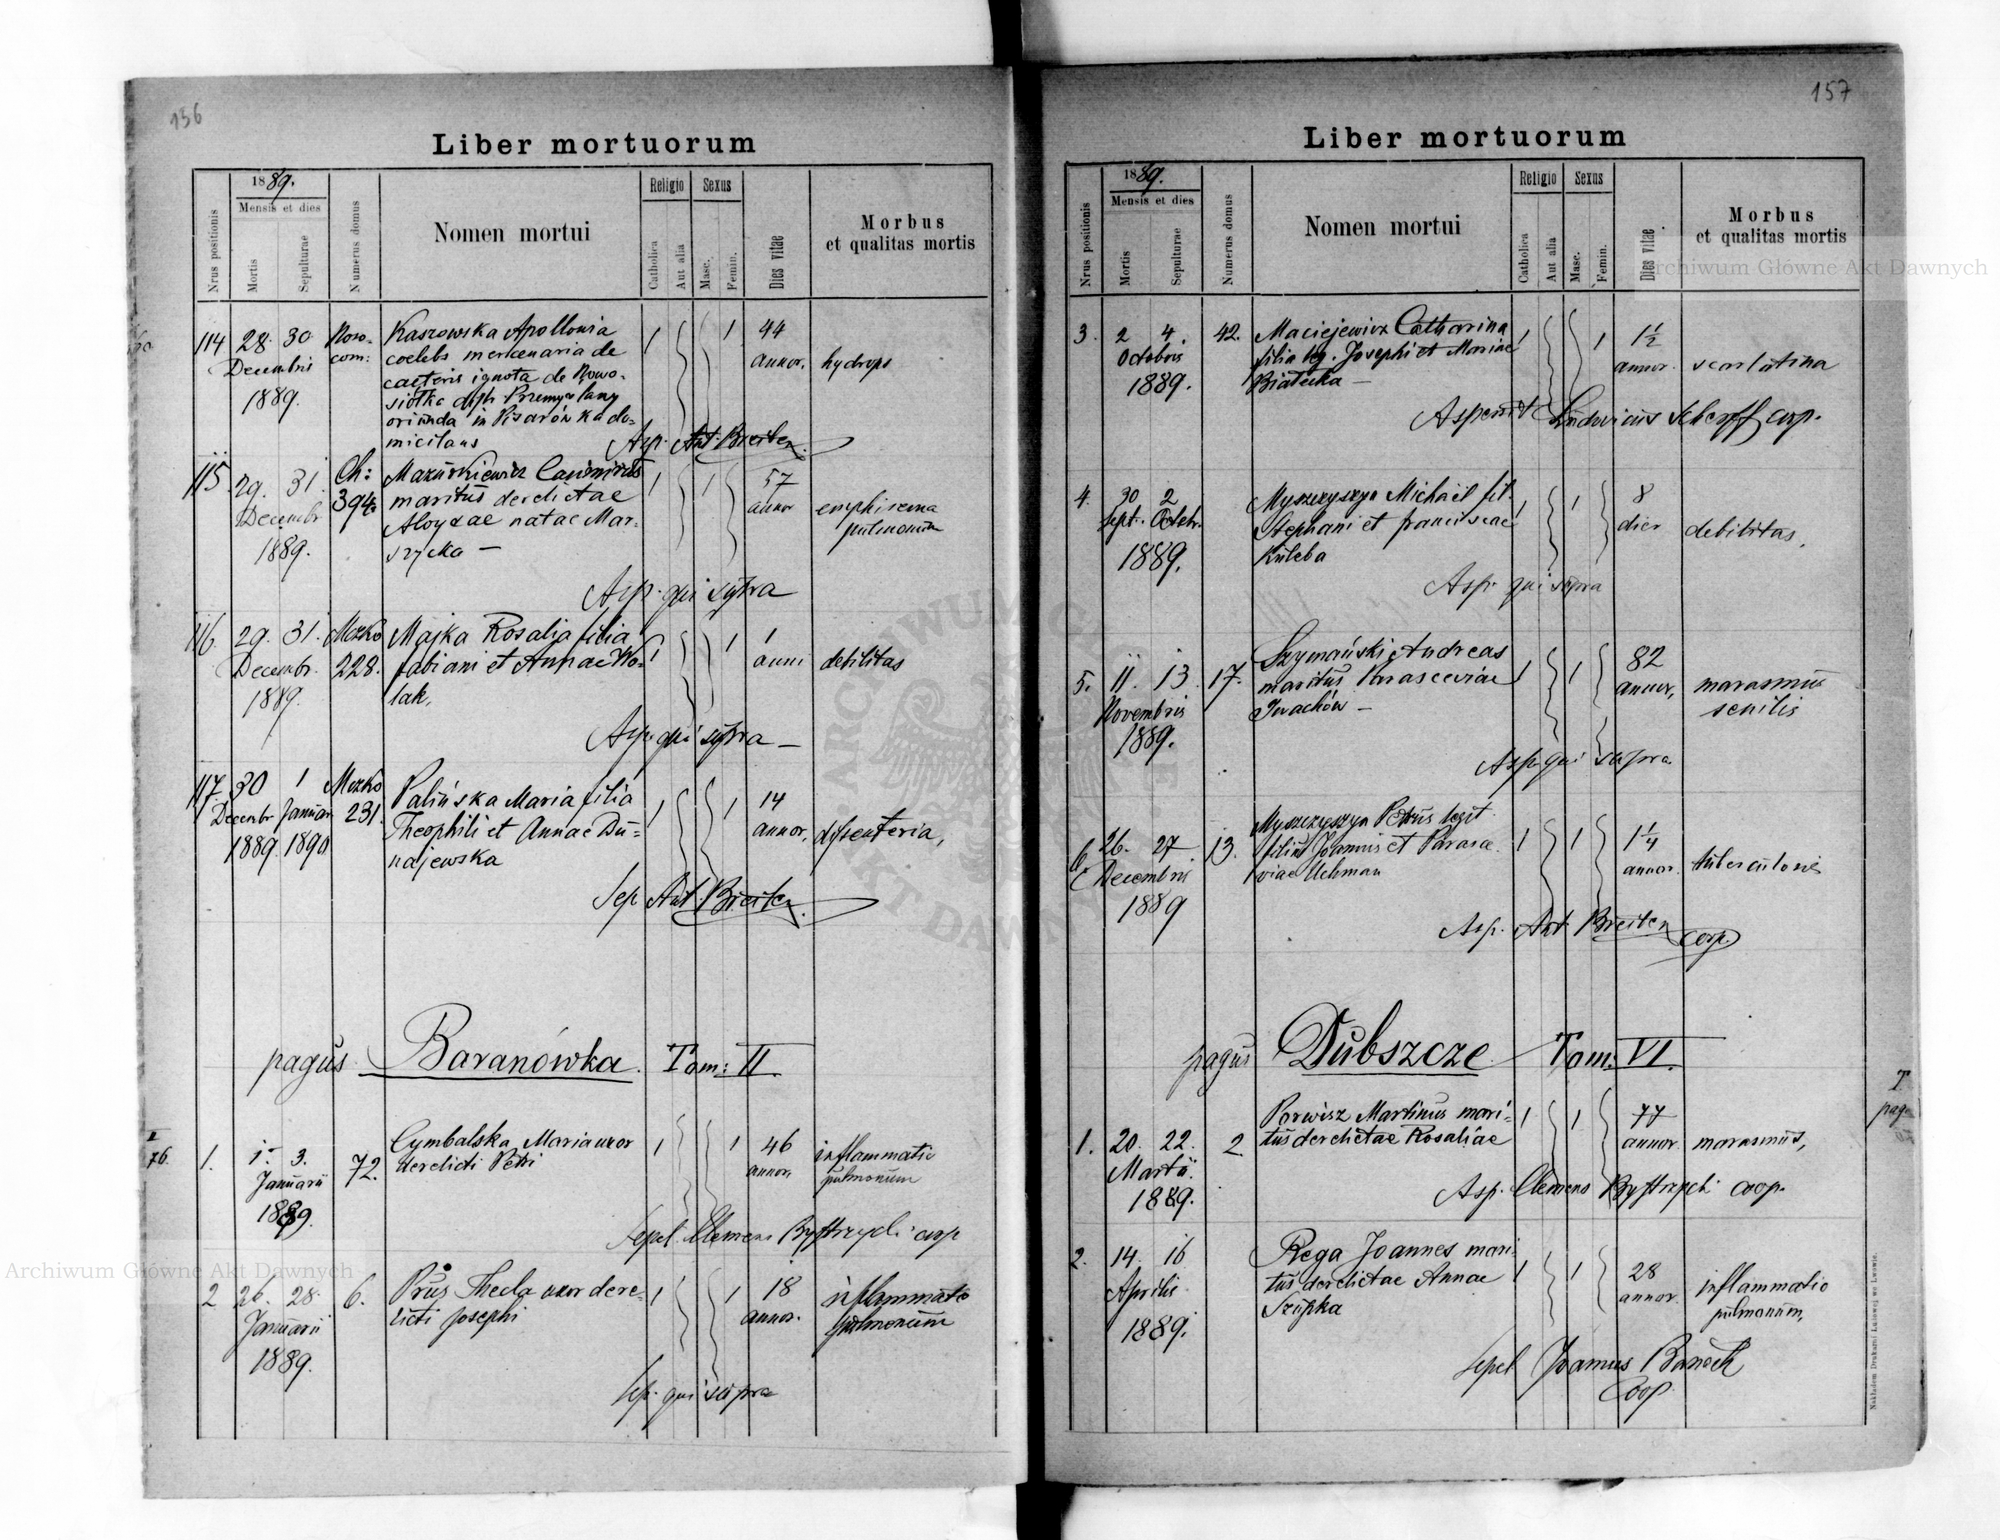 156
Liber mortuorum
Nrus positionis
1889.
Mensis et dies
Mortis
Sepulturae
Numerus domus
Nomen mortui
Religio
Catholica
Aut alia
Sexus
Masc.
Femin.
Dies vitae
Morbus
et qualitas mortis
114 28. 30 Noso-
com:
Decembris
1889.
Kaszowska Apollonia
coelebs mercenaria de
caeteris ignota de Nowo-
siółka
oriunda in Pisarówka do-
micilans
1 1 44
annor. hydrops
Asp. Ant. Breiter
115 29. 31. Ch:
394.
Decembr
1889.
Mazurkiewicz Casimirus
maritus derelictae
Aloyzae natae Mar-
szycka —
1 1 57
annor emphisema
pulmonum
Asp. qui supra
116 29. 31. Mozko
228.
Decembr.
1889.
Majka Rosalia filia
Fabiani et Annae Wo-
lak.
1 1 1
anni debilitas
Asp. qui supra —
117. 30 1 Mozko
231.
Decembr Januar
1889. 1890
Palińska Maria filia
Theophili et Annae Du-
najewska
1 1 14
annor. dysenteria,
Sep Ant. Breiter.
pagus Baranówka. Tom: II.
1. 1. 3. 72.
Januarii
1889.
Cymbalska Maria uxor
derelicti Petri
1 1 46
annor. inflammatio
pulmonum
Sepel. Clemens Bystrzycki coop
2 26. 28. 6.
Januarii
1889.
Prus Thecla uxor dere-
licti Josephi
1 1 18
annor. inflammatio
pulmonum
Sep. qui supra
157
Liber mortuorum
Nrus positionis
1889.
Mensis et dies
Mortis
Sepulturae
Numerus domus
Nomen mortui
Religio
Catholica
Aut alia
Sexus
Masc.
Femin.
Dies vitae
Morbus
et qualitas mortis
3. 2 4. 42.
Octobris
1889.
Maciejewicz Catharina
filia leg. Josephi et Mariae
Białecka —
1 1 1½
annor. scarlatina
Aspersit Ludovicus Scherff coop.
4. 30 2
Sept. Octobr.
1889.
Myszczyszyn Michaël fil.
Stephani et Franciscae
Kuleba
1 1 8
dier debilitas.
Asp. qui supra
5. 11. 13. 17.
Novembris
1889.
Szymański Andreas
maritus Parasceviae
Iwachów —
1 1 82
annor. marasmus
senilis
Asp. qui supra
6. 26. 27. 13.
Decembris
1889
Myszczyszyn Petrus legit
filius Joannis et Parasce
viae Uchman
1 1 1¼
annor. tuberculosis
Asp. Ant. Breiter
coop.
pagus Dubszcze Tom: VI.
1. 20. 22. 2.
Martii
1889.
Porwisz Martinus mari-
tus derelictae Rosaliae
1 1 77
annor. marasmus,
Asp. Clemens Bystrzycki coop.
2. 14. 16
Aprilis
1889.
Rega Joannes mari-
tus derelictae Annae
Szupka
1 1 28
annor. inflammatio
pulmonum,
Sepel Joannes Banach
Coop
Nakładem Drukarni Ludowej we Lwowie.
Archiwum Główne Akt Dawnych
Archiwum Główne Akt Dawnych